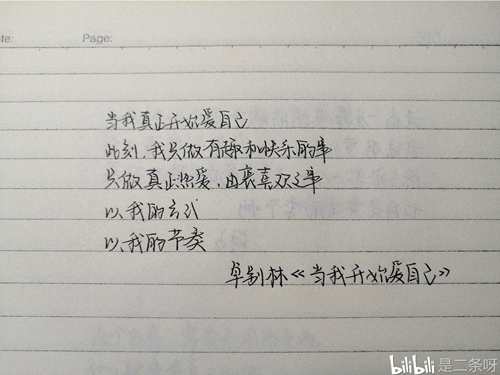 Page:
当我真正开始爱自己
此刻,我只做有趣和快乐的事
只做真正热爱,由衷喜欢之事
以我的方式
以我的节奏
卓别林《当我开始爱自己》
bilibili 是二条呀